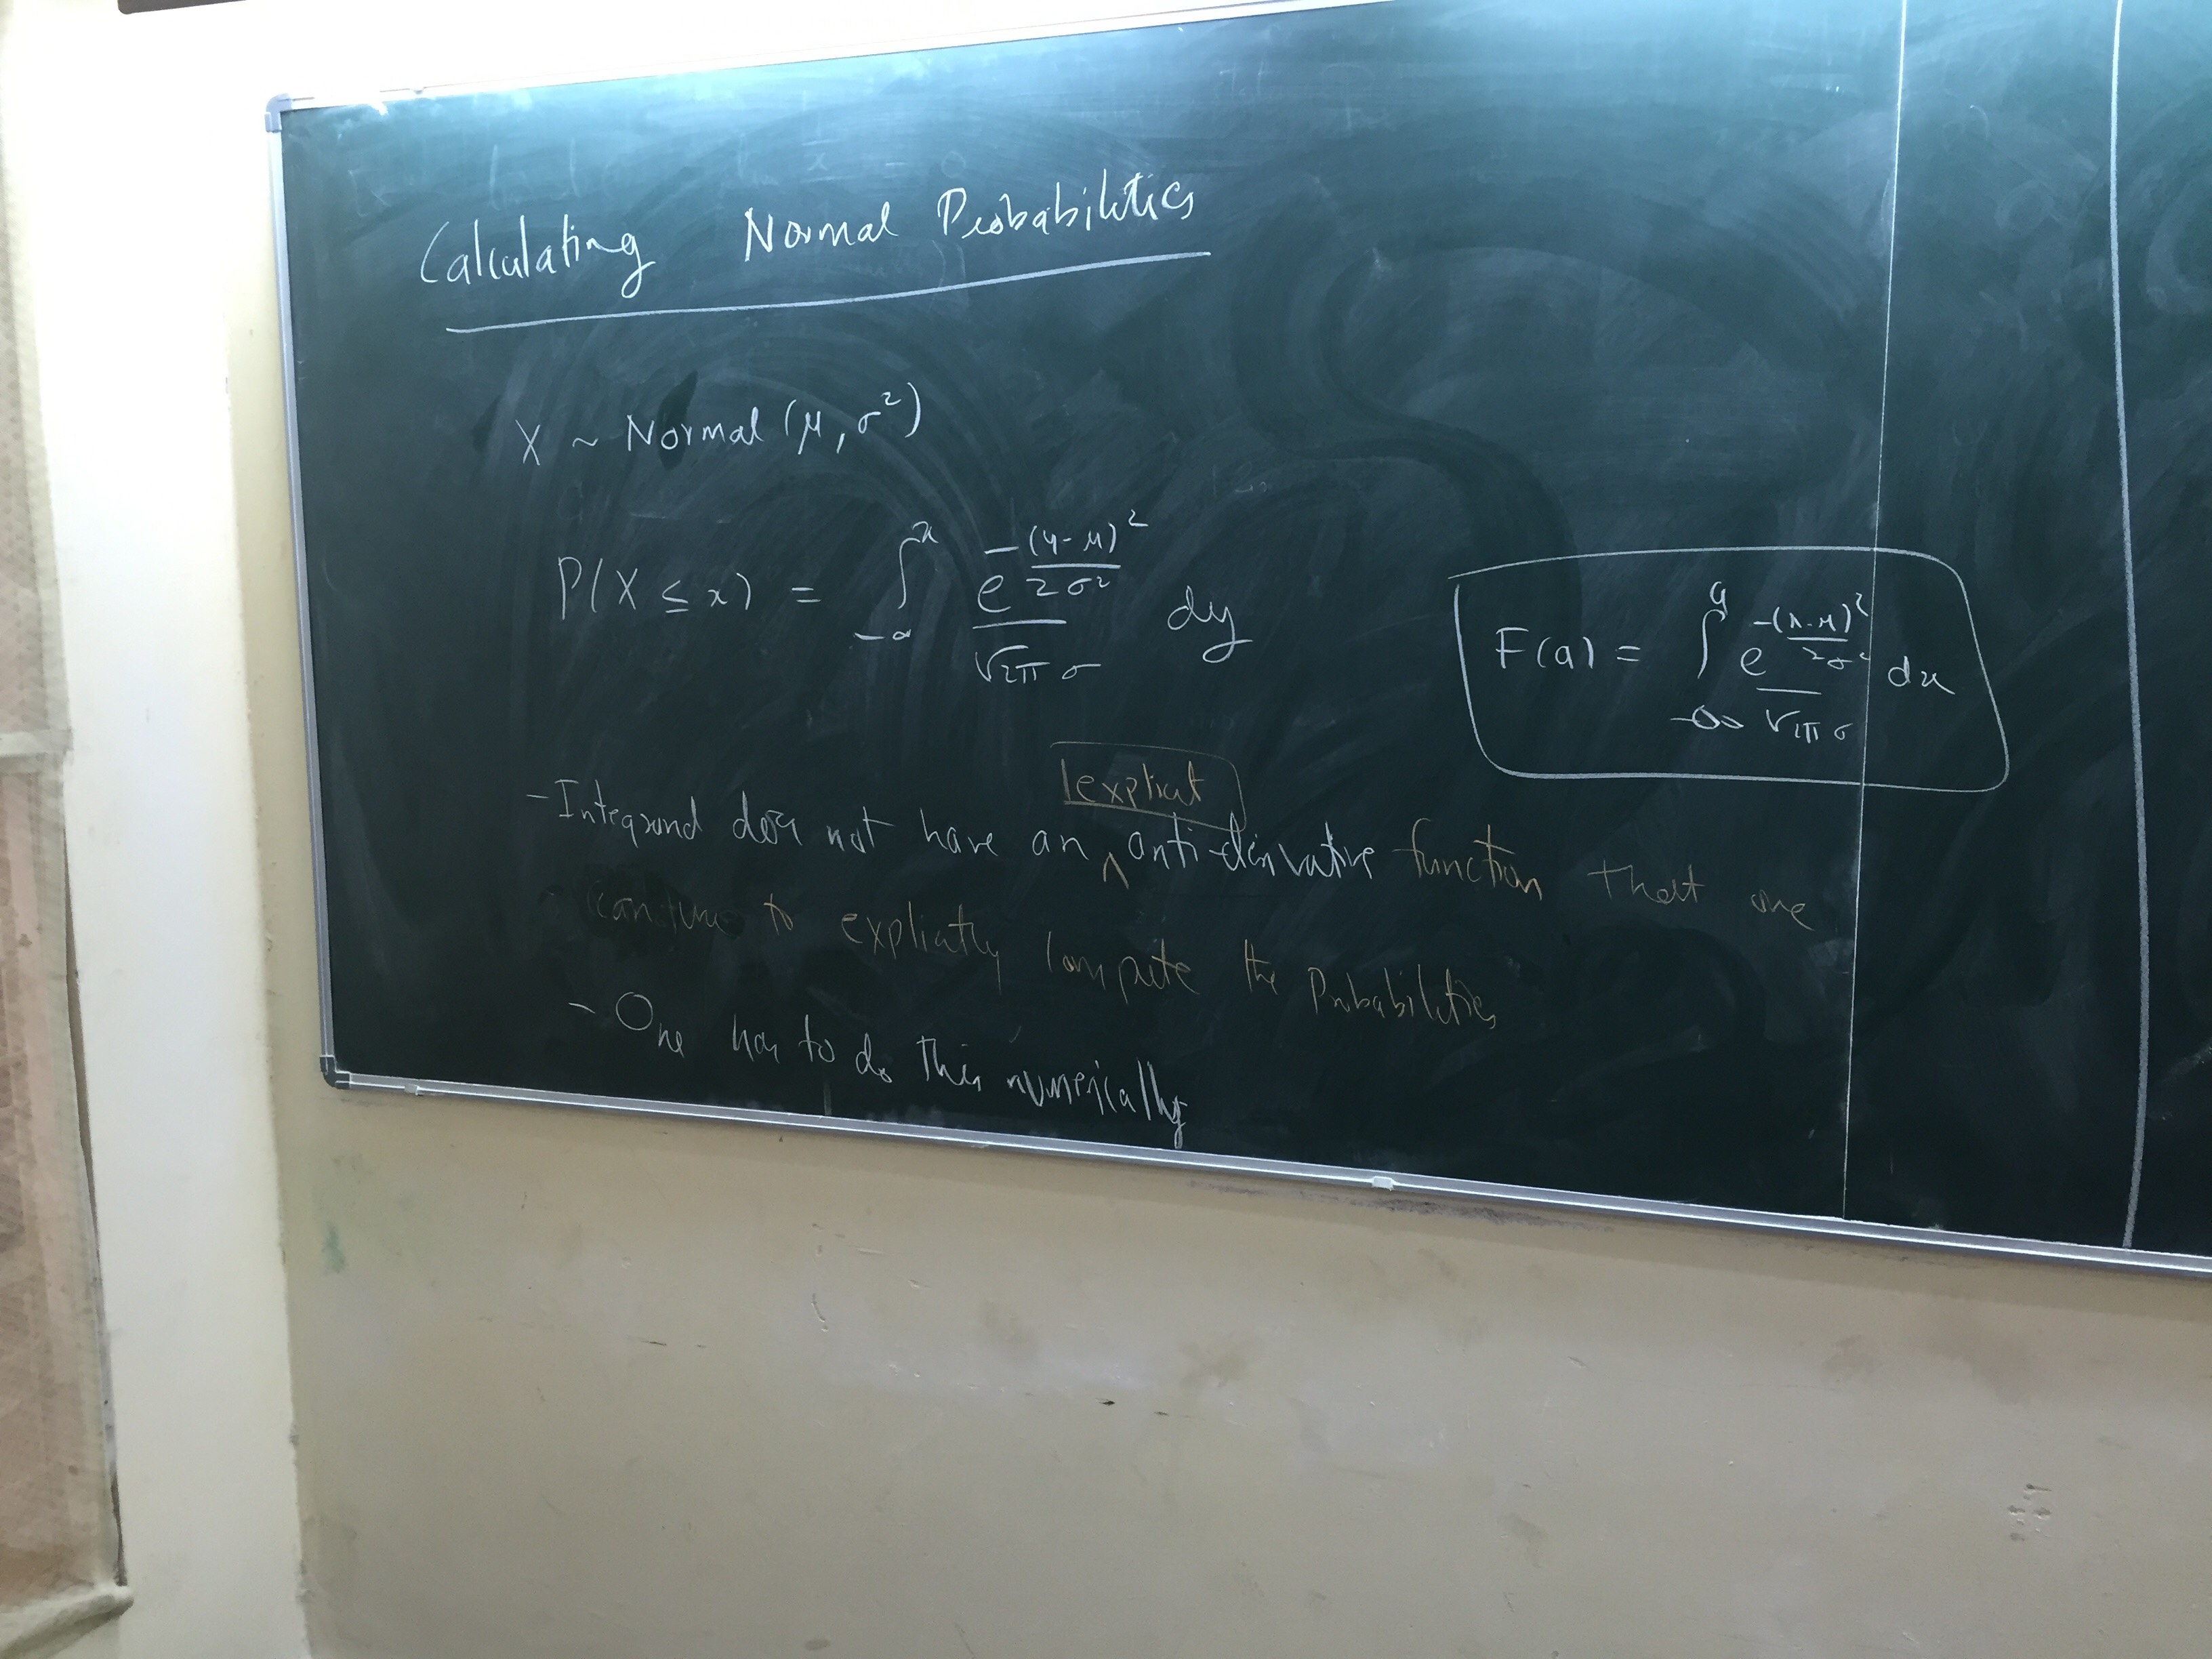 Calculating Normal Probabilities
X ~ Normal (μ, σ²)
P(X ≤ x) = ∫_{-∞}^{x} e^{-(y-μ)²/2σ²} / √2π σ dy
F(a) = ∫_{-∞}^{a} e^{-(x-μ)²/2σ²} / √2π σ dx
explicit
- Integrand does not have an ^ anti-derivative function that one
can use to explicitly compute the Probabilities
- One has to do this numerically